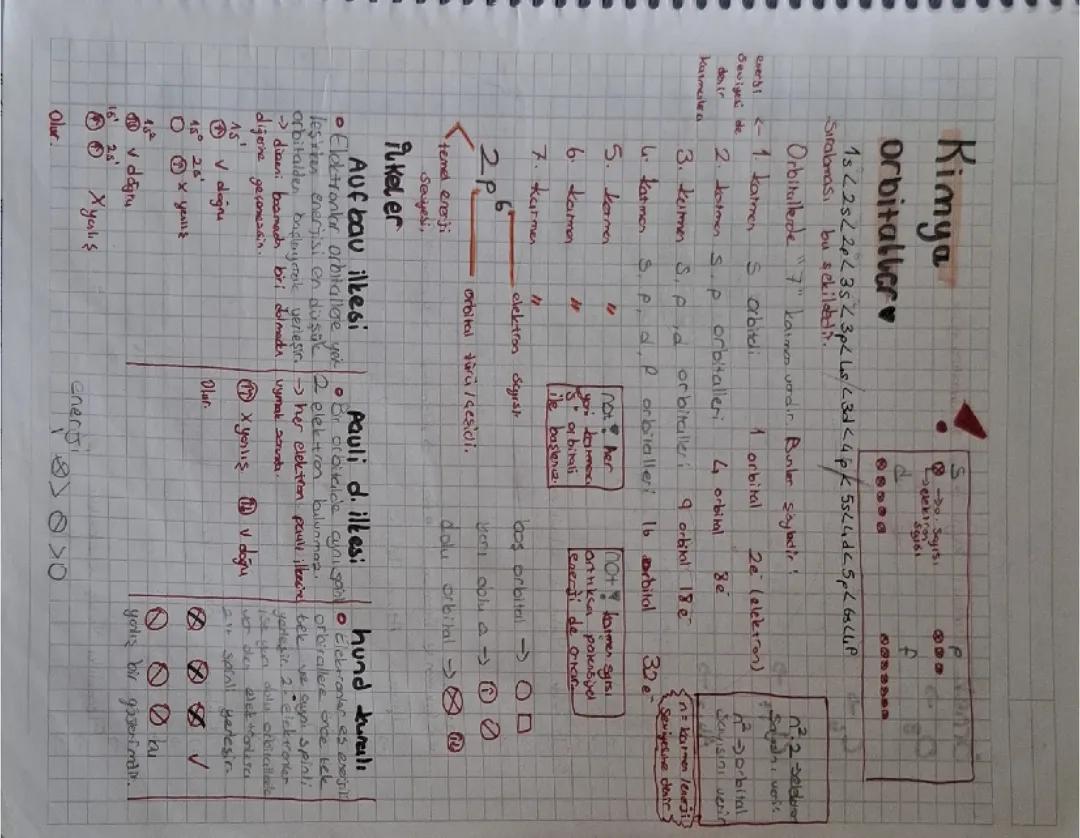 Kimya
Orbitaller♥
1s<2s<2p<3s<3p<4s<3d<4p<5s<4d<5p<6s<4f
Sıralaması bu şekildedir.
s p
→o. sayısı
→elektron sayısı
d f
Orbitallerde "7" katman vardır. Bunlar şöyledir:
enerji seviyesi de denir katmanlara
<- 1. katman s orbitali 1 orbital 2e⁻ (elektron)
2. katman s, p orbitalleri 4 orbital 8e⁻
3. katman s, p, d orbitalleri 9 orbital 18e⁻
4. katman s, p, d, f orbitalleri 16 orbital 32e⁻
5. katman "
6. katman "
7. katman "
n².2→elektron sayısını verir.
n²→orbital sayısını verir
{n=katman/enerji seviyesine denir}
not! her yeni katman "s" orbitali ile başlanır.
not! katman sayısı arttıkça potansiyel enerji de artar.
2p⁶
elektron sayısı
orbital türü/çeşidi.
temel enerji seviyesi.
boş orbital →
yarı dolu o. →
dolu orbital →
İlkeler
Aufbau ilkesi
• Elektronlar orbitallere yerleşirken enerjisi en düşük
orbitalden başlayarak yerleşir.
→ düzeni bozmadan biri dolmadan
diğerine geçemezsin.
1s¹
↑ v doğru
1s⁰ 2s¹
↑ x yanlış
1s²
↑↓ v doğru
1s¹ 2s¹
↑ ↑ X yanlış
Olur.
pauli d. ilkesi
• Bir orbitalde aynı spinli
2 elektron bulunamaz.
→ her elektron pauli ilkesine
uymak zorunda.
↑↑ x yanlış ↑↓ v doğru
Olur.
enerji > >
hund kuralı
• Elektronlar eş enerjili
orbitallere önce tek
tek ve aynı spinli
yerleşir. 2. elektronlar
ise yarı dolu orbitallerde
var olan elektronlara
zıt spinli yerleşir.
✓
bu
yanlış bir gösterimdir.